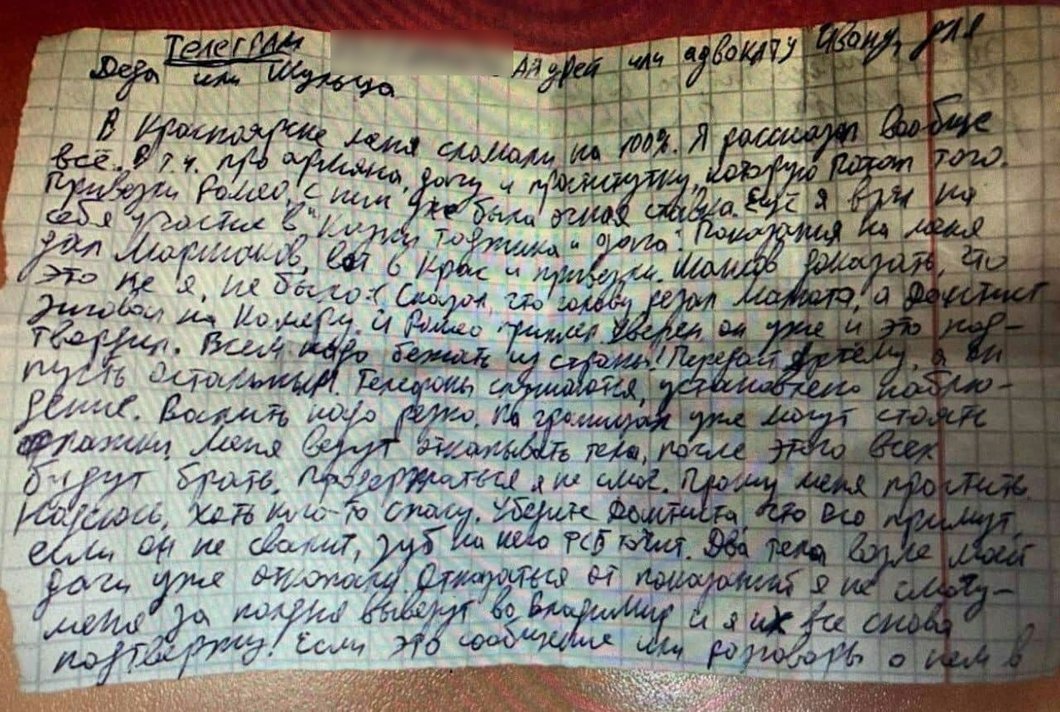 Телеграм Андрей или адвокату Ивану, для
Деда или Мульца
В Красноярске меня сломали на 100%. Я рассказал вообще
всё. В т.ч. про армяна, дачу и проститутку, которую потом того.
Привезли Ромео, с ним уже была очная ставка. Ещё я взял на
себя участие в "Казни таджика и дага". Показания на меня
дал Маршаков, вот в Крас и привезли. Шансов доказать, что
это не я, не было :( Сказал, что голову резал Мамота, а Дантист
зиговал на камеру. И Ромео уверен он уже и это под-
твердил. Всем надо бежать из страны! Передай Артёму, а он
пусть остальным. Телефоны слушаются, установлено наблю-
дение. Валить надо резко. На границах уже могут стоять
меня везут откапывать тела, после этого всех
будут брать. Продержаться я не смог. Прошу меня простить.
Надеюсь, хоть кого-то спасу. Уберите Дантиста, его примут,
если он не свалит, зуб на него ФСБ точит. Два тела возле моей
дачи уже откопали. Отказаться от показаний я не смогу-
меня за полдня вывезут во Владимир и я их все снова
подтвержу! Если это сообщение или разговоры о нем в